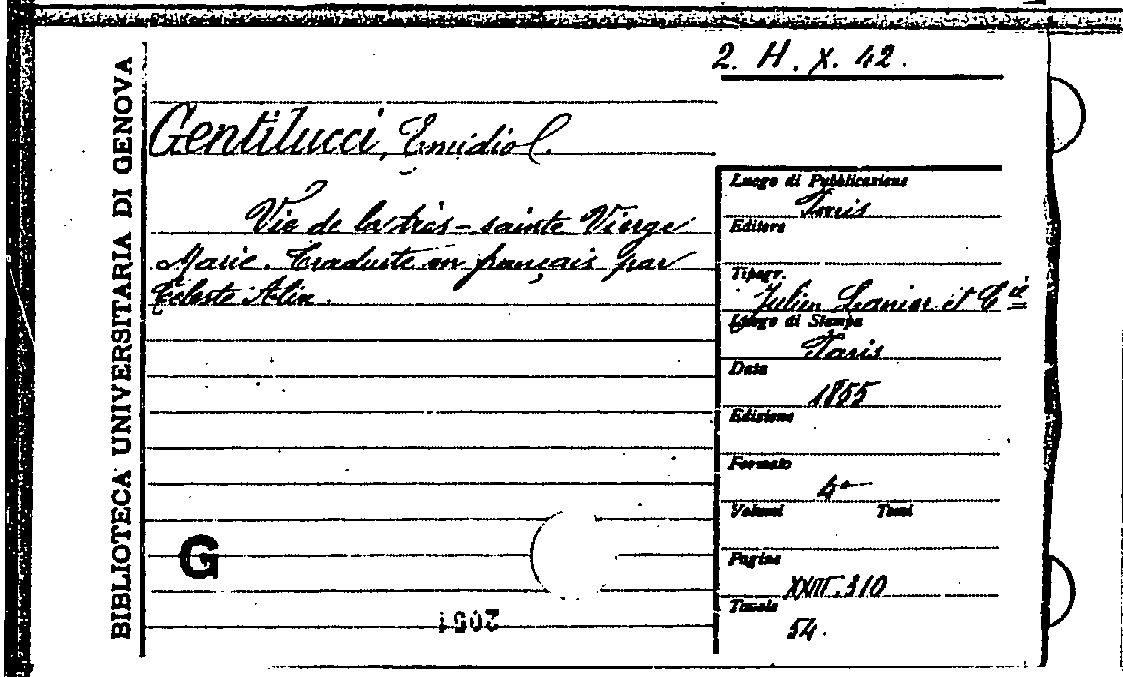 BIBLIOTECA UNIVERSITARIA DI GENOVA
2. H. X. 42.
Gentilucci, Emidio
Vie de la très-sainte Vierge
Marie. Traduite en français par
Céleste Alix.
Luogo di Pubblicazione
Paris
Editore
Tipogr.
Julien Lanier et Cie
Luogo di Stampa
Paris
Data
1855
Edizione
Formato
4°
Volumi Tomi
Pagine
XXIII.310
Tavole
54.
G
2051